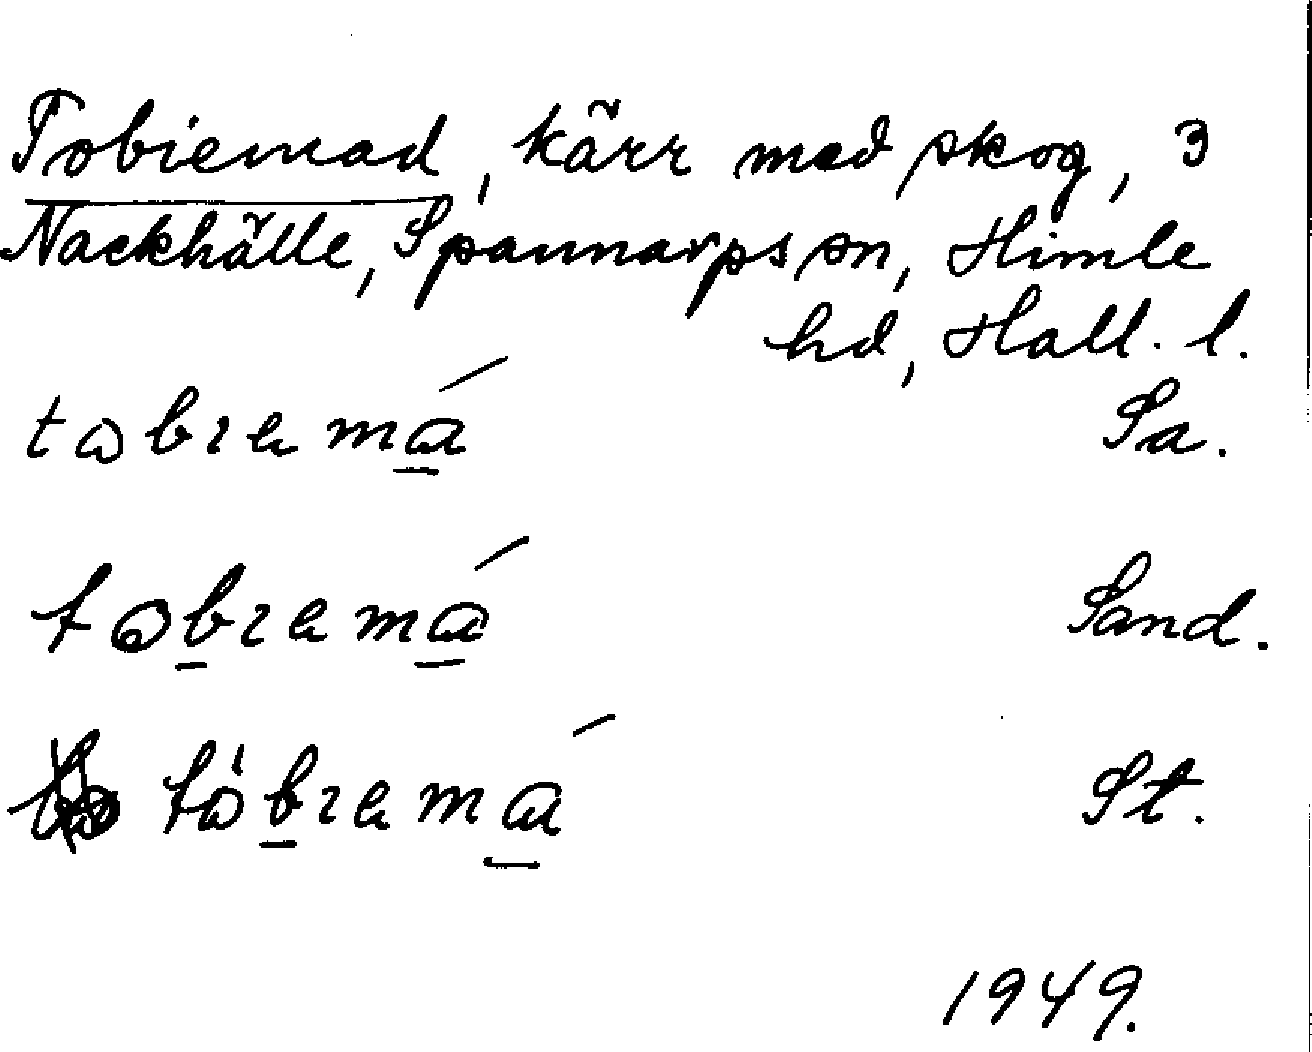 Tobiemad, kärr med skog, 3
Nackhälle, Spannarps sn, Himle
hd, Hall. l.
tobıemá Sa.
tobıemá Sand.
tòbıemá St.
1949.